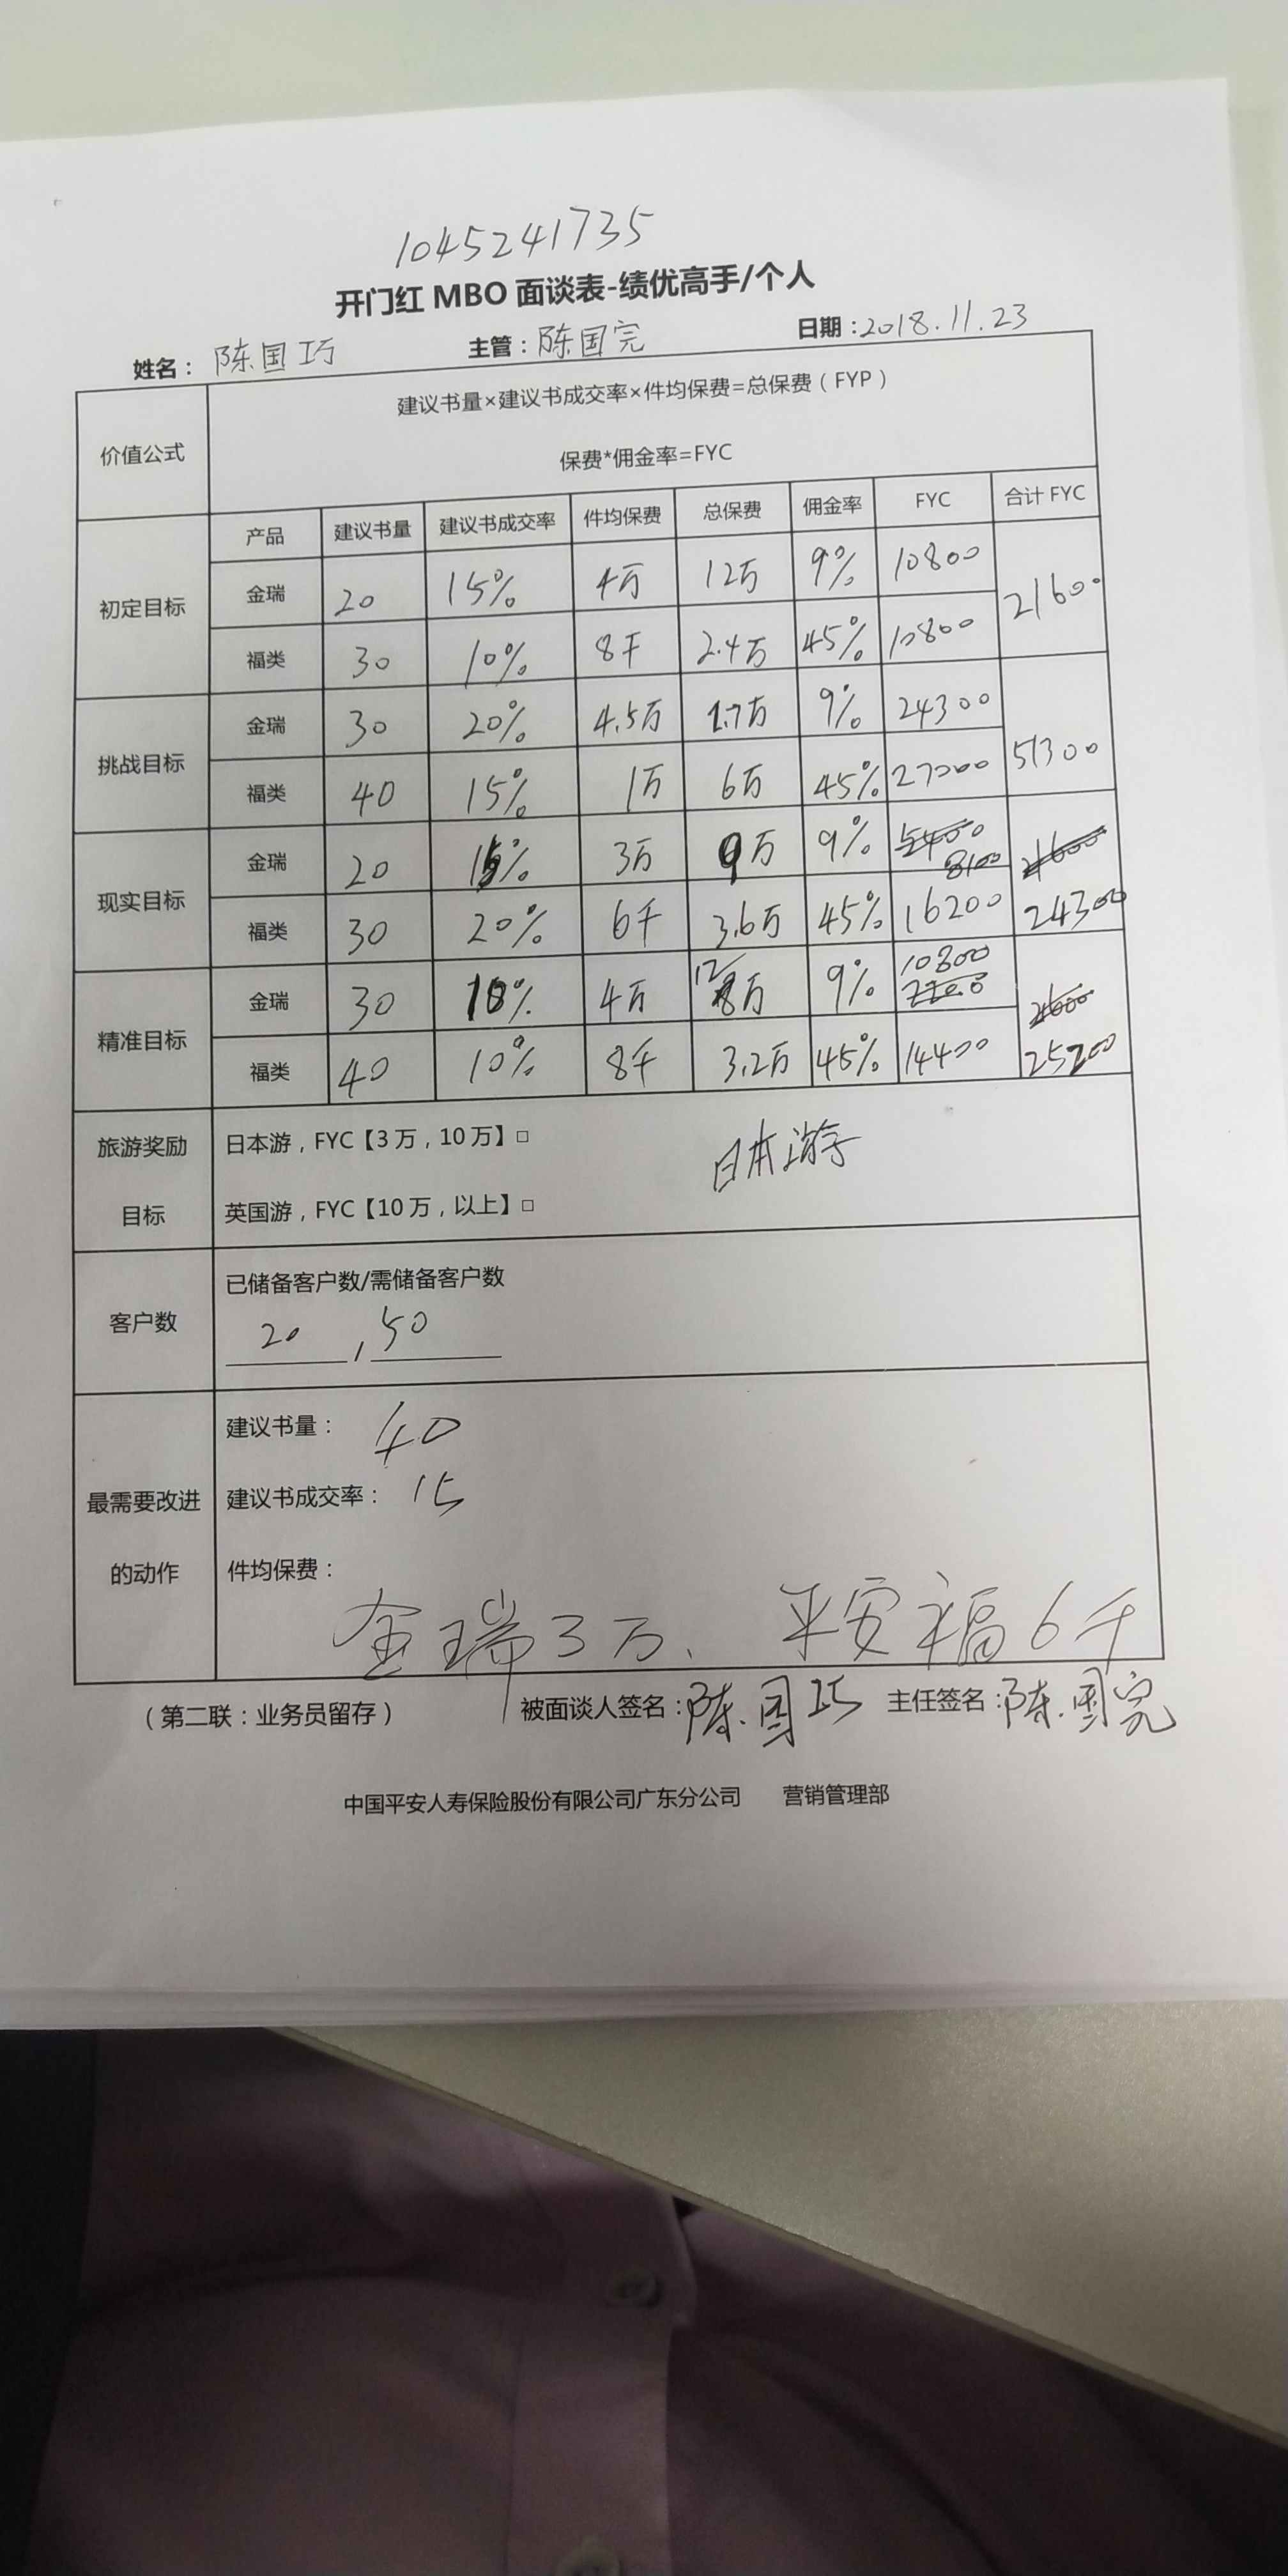 1045241735
开门红 MBO 面谈表-绩优高手/个人
姓名： 陈国巧 主管：陈国完 日期：2018.11.23
价值公式 建议书量×建议书成交率×件均保费=总保费（FYP）
保费*佣金率=FYC
产品 建议书量 建议书成交率 件均保费 总保费 佣金率 FYC 合计 FYC
初定目标 金瑞 20 15% 4万 12万 9% 10800 21600
福类 30 10% 8千 2.4万 45% 10800
挑战目标 金瑞 30 20% 4.5万 9% 24300 51300
福类 40 15% 1万 6万 45% 27000
现实目标 金瑞 20 15% 3万 9万 9% 5400 8100 21600
福类 30 20% 6千 3.6万 45% 16200 24300
精准目标 金瑞 30 10% 4万 12万 9% 10800
福类 40 10% 8千 3.2万 45% 14400 25200
旅游奖励目标 日本游，FYC【3万，10万】□ 日本游
英国游，FYC【10万，以上】□
客户数 已储备客户数/需储备客户数
20 , 50
最需要改进的动作 建议书量： 40
建议书成交率： 15
件均保费：
金瑞3万、平安福6千
（第二联：业务员留存） 被面谈人签名：陈国巧 主任签名：陈国完
中国平安人寿保险股份有限公司广东分公司 营销管理部